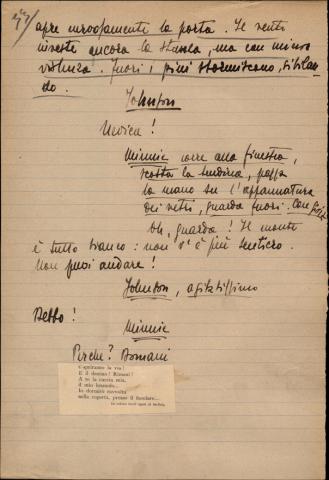 apre nervosamente la porta. Il vento
investe ancora la stanza, ma con minor
violenza. Fuori, i pini stormiscono, sibilan-
do.
Johnson
Nevica!
Minnie corre alla finestra,
scosta la tendina, passa
la mano su l'appannatura
dei vetri, guarda fuori. Con gioia
Oh, guarda! Il monte
è tutto bianco: non v'è più sentiero.
Non puoi andare!
Johnson, agitatissimo
Debbo!
Minnie
Perchè? Domani
t'apriranno la via!
È il destino! Rimani!
A te la cuccia mia,
In dormirò ravvolta
nella coperta, presso il focolare...